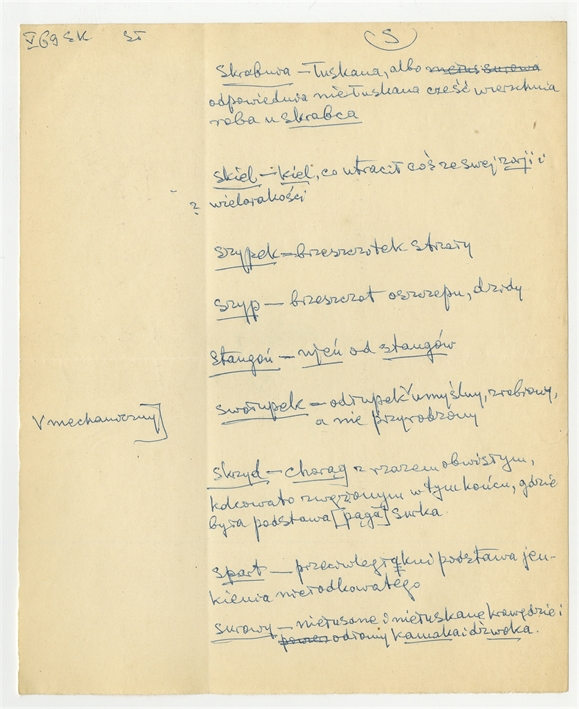 V 69 SK SŁ
S
Skrabnia – łuskana, albo nietus surowa
odpowiednia niełuskana cześć wierzchnia
roba u skrabca
Skieł – kieł, co utracił coś ze swej
? wielorakości
szypek – brzeszczotek strzały
szyp – brzeszczot oszczepu, dzidy
stangoń – od stangów
swołupek – odłupek umyślny, zrobiony,
a nie przyrodzony
V mechaniczny]
skrzyd – chorąg z rzazem obwisłym,
kolcowato zwężonym w tym końcu, gdzie
była podstawa [pąga] surka.
spart – przeciwległa podstawa jen-
kienia nierodkowatego
surowy – nietusane i niełuskane krawędzie i
odłomy kamaka i dźwoka.